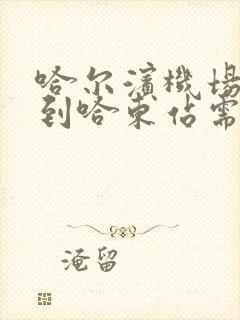 哈尔滨機場
到哈東站需
淹留